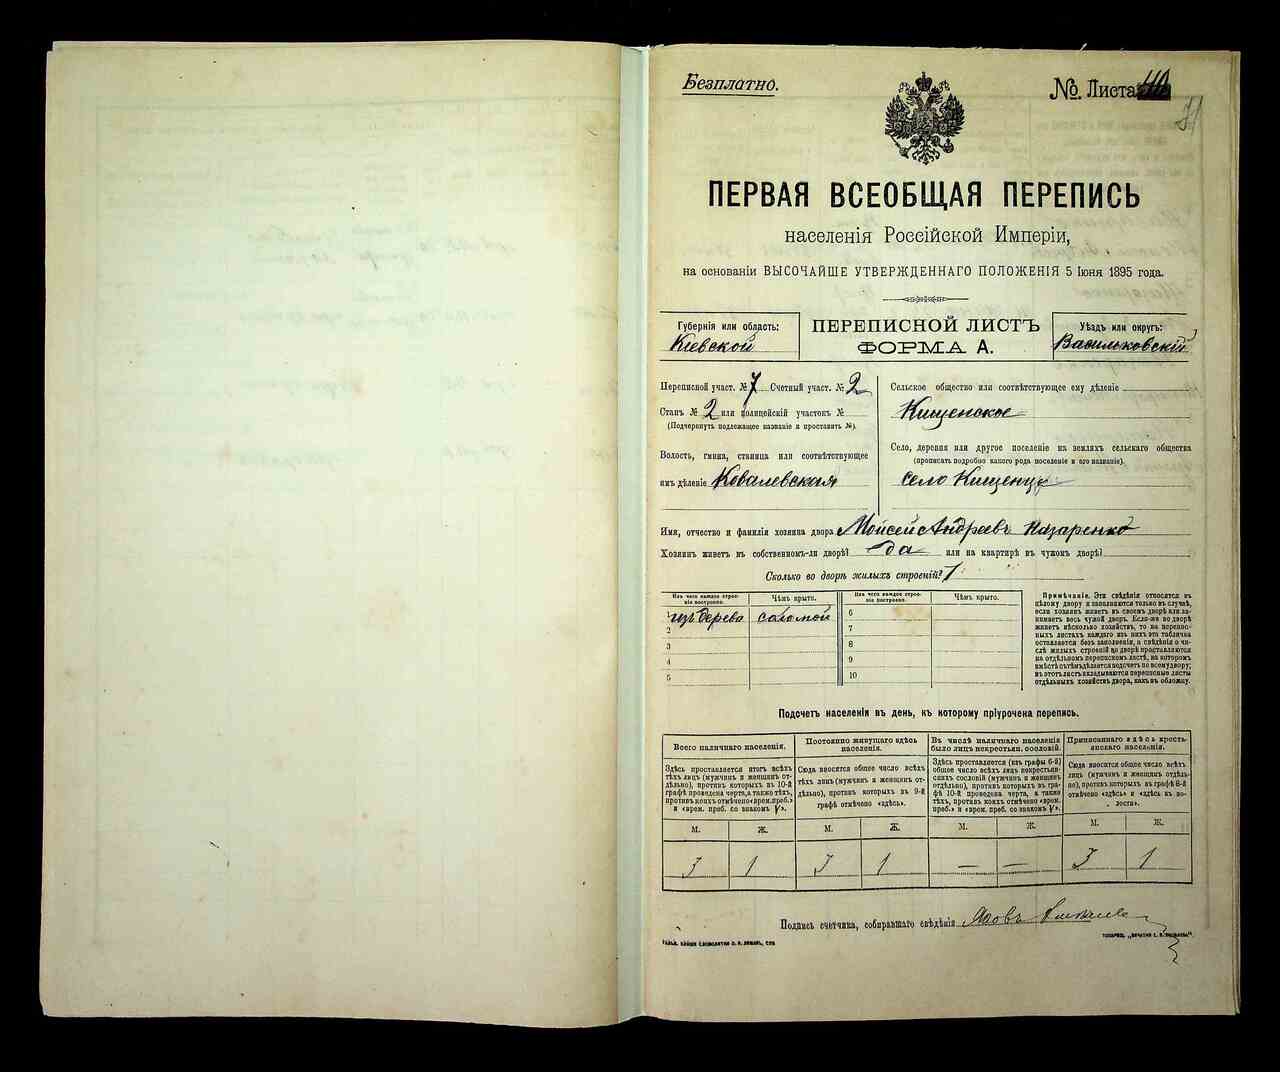 Безплатно.
№ Листа 40
ПЕРВАЯ ВСЕОБЩАЯ ПЕРЕПИСЬ
населенія Россійской Имперіи,
на основаніи ВЫСОЧАЙШЕ УТВЕРЖДЕННАГО ПОЛОЖЕНІЯ 5 Іюня 1895 года.
Губернія или область:
Кіевской
ПЕРЕПИСНОЙ ЛИСТЪ
ФОРМА А.
Уѣздъ или округъ:
Васильковскій
Переписной участ. № 7 Счетный участ. № 2
Станъ № 2 или полицейскій участокъ №
(Подчеркнуть подлежащее названіе и проставить №).
Волость, гмина, станица или соотвѣтствующее
имъ дѣленіе Ковалевская
Сельское общество или соотвѣтствующее ему дѣленіе
Кищенское
Село, деревня или другое поселеніе на земляхъ сельскаго общества
(прописать подробно какого рода поселеніе и его названіе).
село Кищенцы
Имя, отчество и фамилія хозяина двора Мойсей Андреевъ Назаренко
Хозяинъ живетъ въ собственномъ-ли дворѣ? да или на квартирѣ въ чужомъ дворѣ?
Сколько во дворѣ жилыхъ строеній? 1
Изъ чего каждое строе-
ніе построено.
Чѣмъ крыто.
1 изъ дерева соломой
2
3
4
5
Изъ чего каждое строе-
ніе построено.
Чѣмъ крыто.
6
7
8
9
10
Примѣчаніе. Эти свѣдѣнія относятся къ
цѣлому двору и заполняются только въ случаѣ,
если хозяинъ живетъ въ своемъ дворѣ или за-
нимаетъ весь чужой дворъ. Если-же во дворѣ
живетъ нѣсколько хозяйствъ, то на перепис-
ныхъ листахъ каждаго изъ нихъ эта табличка
оставляется безъ заполненія, а свѣдѣнія о чи-
слѣ жилыхъ строеній во дворѣ проставляются
на отдѣльномъ переписномъ листѣ, на которомъ
вмѣстѣ съ тѣмъ дѣлается подсчетъ по всему двору;
въ этотъ листъ вкладываются переписные листы
отдѣльныхъ хозяйствъ двора, какъ въ обложку.
Подсчетъ населенія въ день, къ которому пріурочена перепись.
Всего наличнаго населенія.
Здѣсь проставляется итогъ всѣхъ
тѣхъ лицъ (мужчинъ и женщинъ от-
дѣльно), противъ которыхъ въ 10-й
графѣ проведена черта, а также тѣхъ,
противъ коихъ отмѣчено «врем. преб.»
и «врем. преб. со знакомъ V».
Постоянно живущаго здѣсь
населенія.
Сюда вносится общее число всѣхъ
тѣхъ лицъ (мужчинъ и женщинъ от-
дѣльно), противъ которыхъ въ 9-й
графѣ отмѣчено «здѣсь».
Въ числѣ наличнаго населенія
было лицъ некрестьян. сословій.
Здѣсь проставляется (изъ графы 6-й)
общее число всѣхъ лицъ некрестьян-
скихъ сословій (мужчинъ и женщинъ
отдѣльно), противъ которыхъ въ гра-
фѣ 10-й проведена черта, а также
тѣхъ, противъ коихъ отмѣчено «врем.
преб.» и «врем. преб. со знакомъ V».
Приписаннаго здѣсь кресть-
янскаго населенія.
Сюда вносится общее число всѣхъ
лицъ (мужчинъ и женщинъ отдѣль-
но), противъ которыхъ въ графѣ 8-й
отмѣчено «здѣсь» и «здѣсь къ во-
лости».
М. Ж. М. Ж. М. Ж. М. Ж.
3 1 3 1 — — 3 1
Подпись счетчика, собиравшаго свѣдѣнія Яковъ